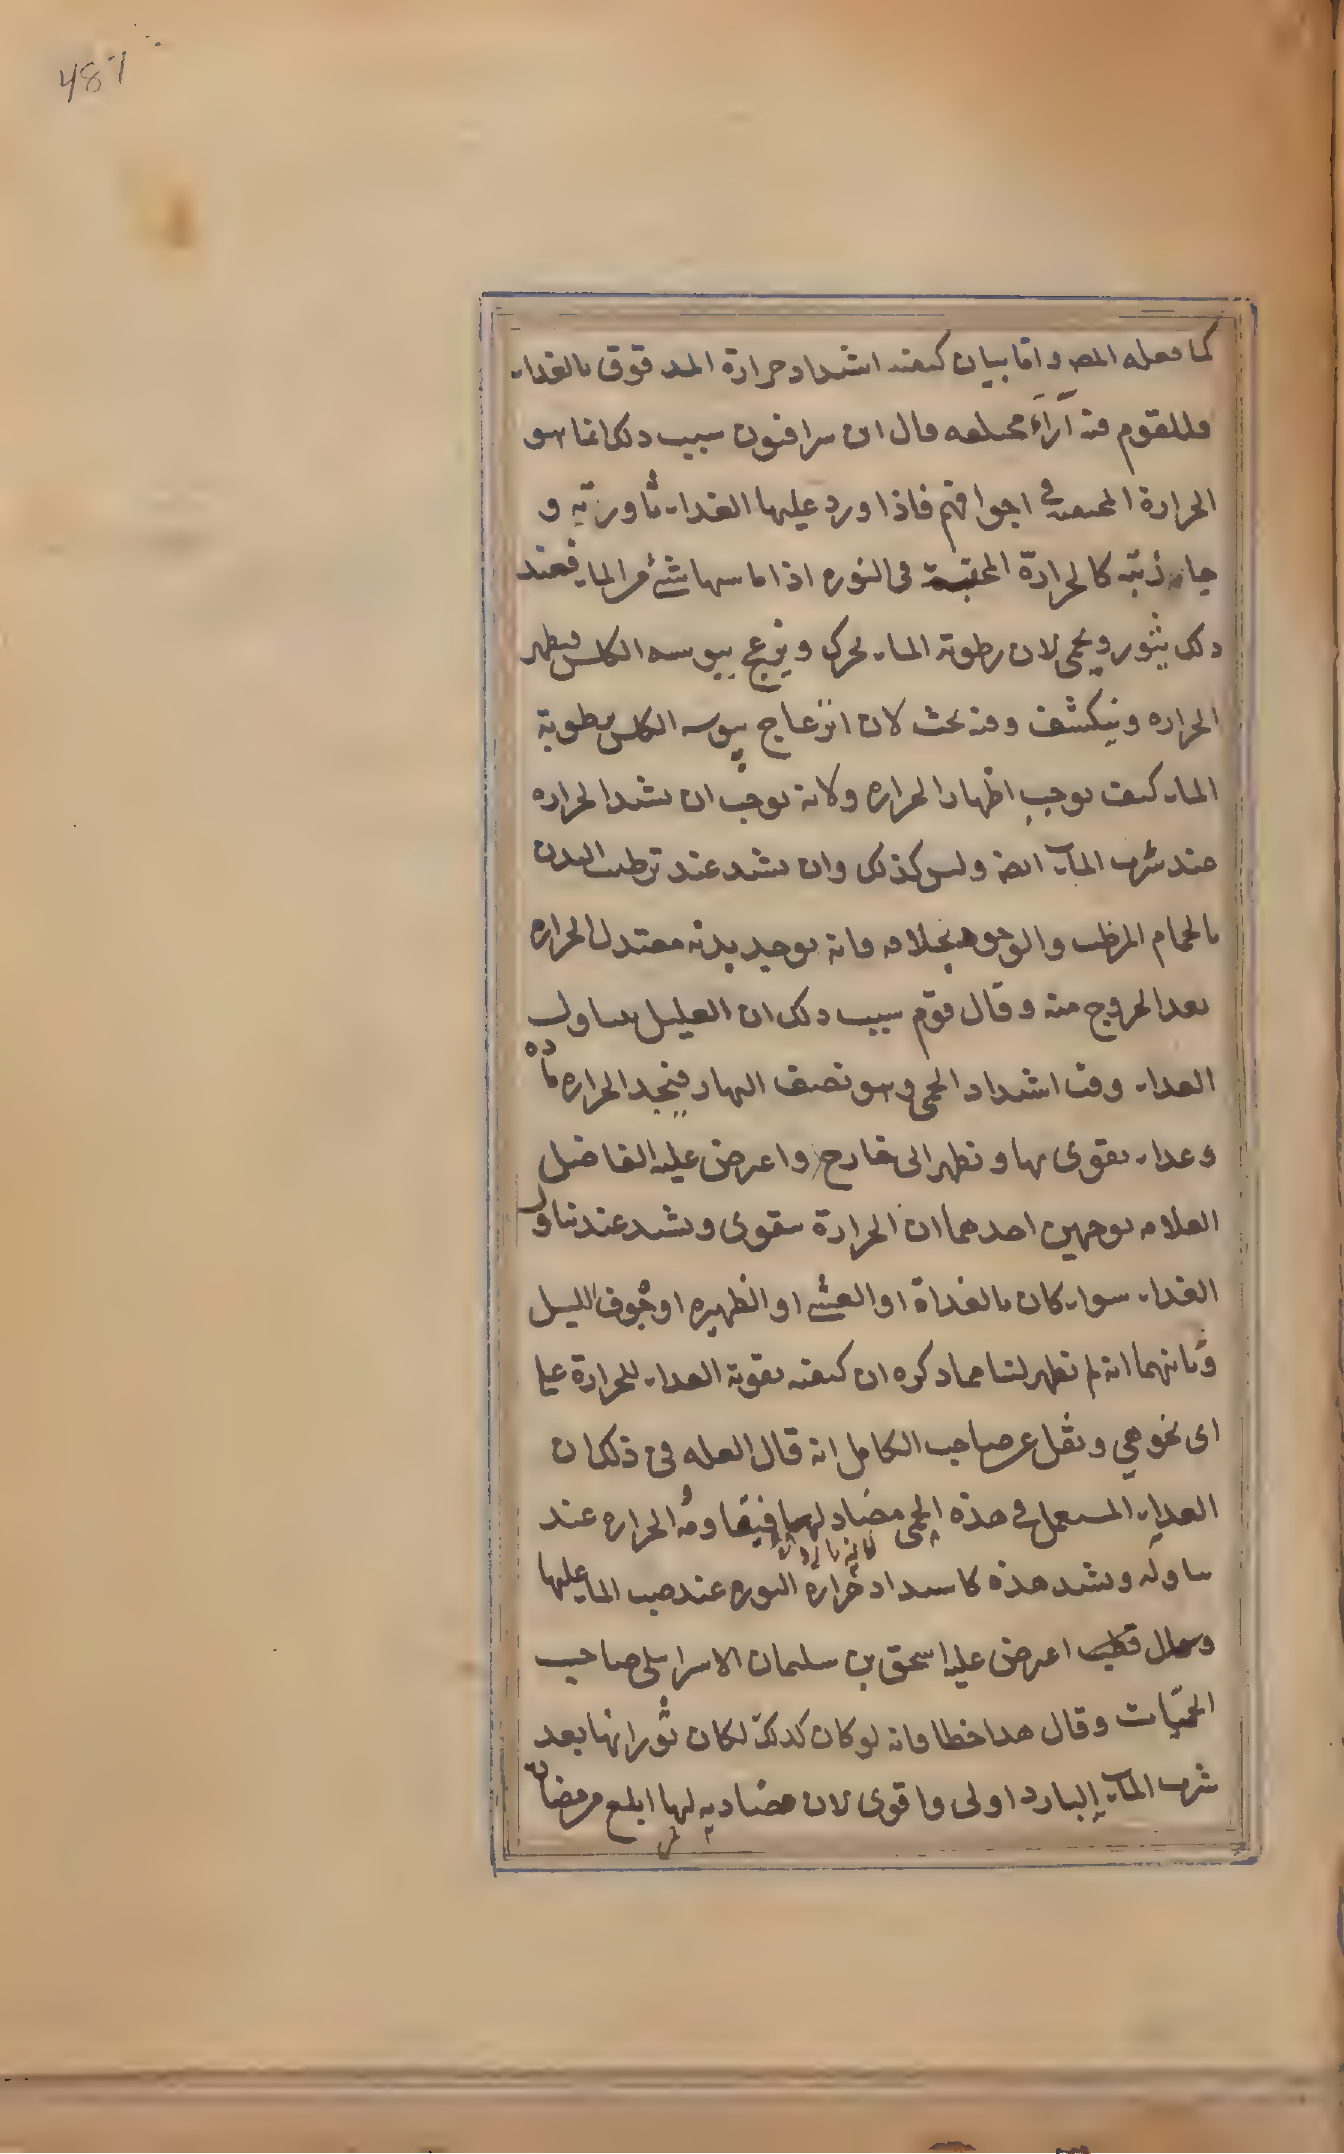 487
كما فعله المص واما بيان كيفية اشتداد حرارة المدقوق بالغداء
فللقوم فيه آراء مختلفه قال ابن سرافيون سبب ذلك انما هو
الحرارة المحتقنة في اجوافهم فاذا ورد عليها الغداء ثاورته و
جاذبته كالحرارة المحتقنة في النوره اذا ماسها شئ من الماء فعند
ذلك يثور ويحمى لان رطوبة الماء يحرك ويزعج يبوسه الكلس فيظهر
الحراره وينكشف وفيه بحث لان انزعاج يبوسه الكلس برطوبة
الماء كيف يوجب اظهار الحراره ولانه يوجب ان يشتد الحراره
عند شرب الماء ايضا وليس كذلك وان يشتد عند ترطيب البدن
بالحمام المرطب والوجود بخلافه فانه يوجد بدنه معتدل الحراره
بعد الخروج منه وقال قوم سبب ذلك ان العليل يتناول
الغداء وقت اشتداد الحمى وهو نصف النهار فيتجد الحراره ماده
وغداء يقوى بها ويظهر الى خارج واعترض عليه الفاضل
العلامه بوجهين احدهما ان الحرارة يتقوى ويشتد عند تناول
الغداء سواء كان بالغداة او العشي او الظهيره او جوف الليل
وثانيهما انه لم يظهر لنا مما ذكره ان كيفيه تقوية الغداء للحرارة على
اى نحو هي ونقل عن صاحب الكامل انه قال العله في ذلك ان
الغداء المستعمل في هذه الحمى مضاد لها فيقاومه الحراره عند
تناوله ويشتد هذه كاشتداد حراره النوره عند صب الماء عليها
اعترض عليه اسحق بن سليمان الاسرائيلى صاحب
الحميات وقال هذا خطا فانه لو كان كذلك لكان ثورانها بعد
شرب الماء البارد اولى واقوى لان مضاديه لها ابلغ من مضادة